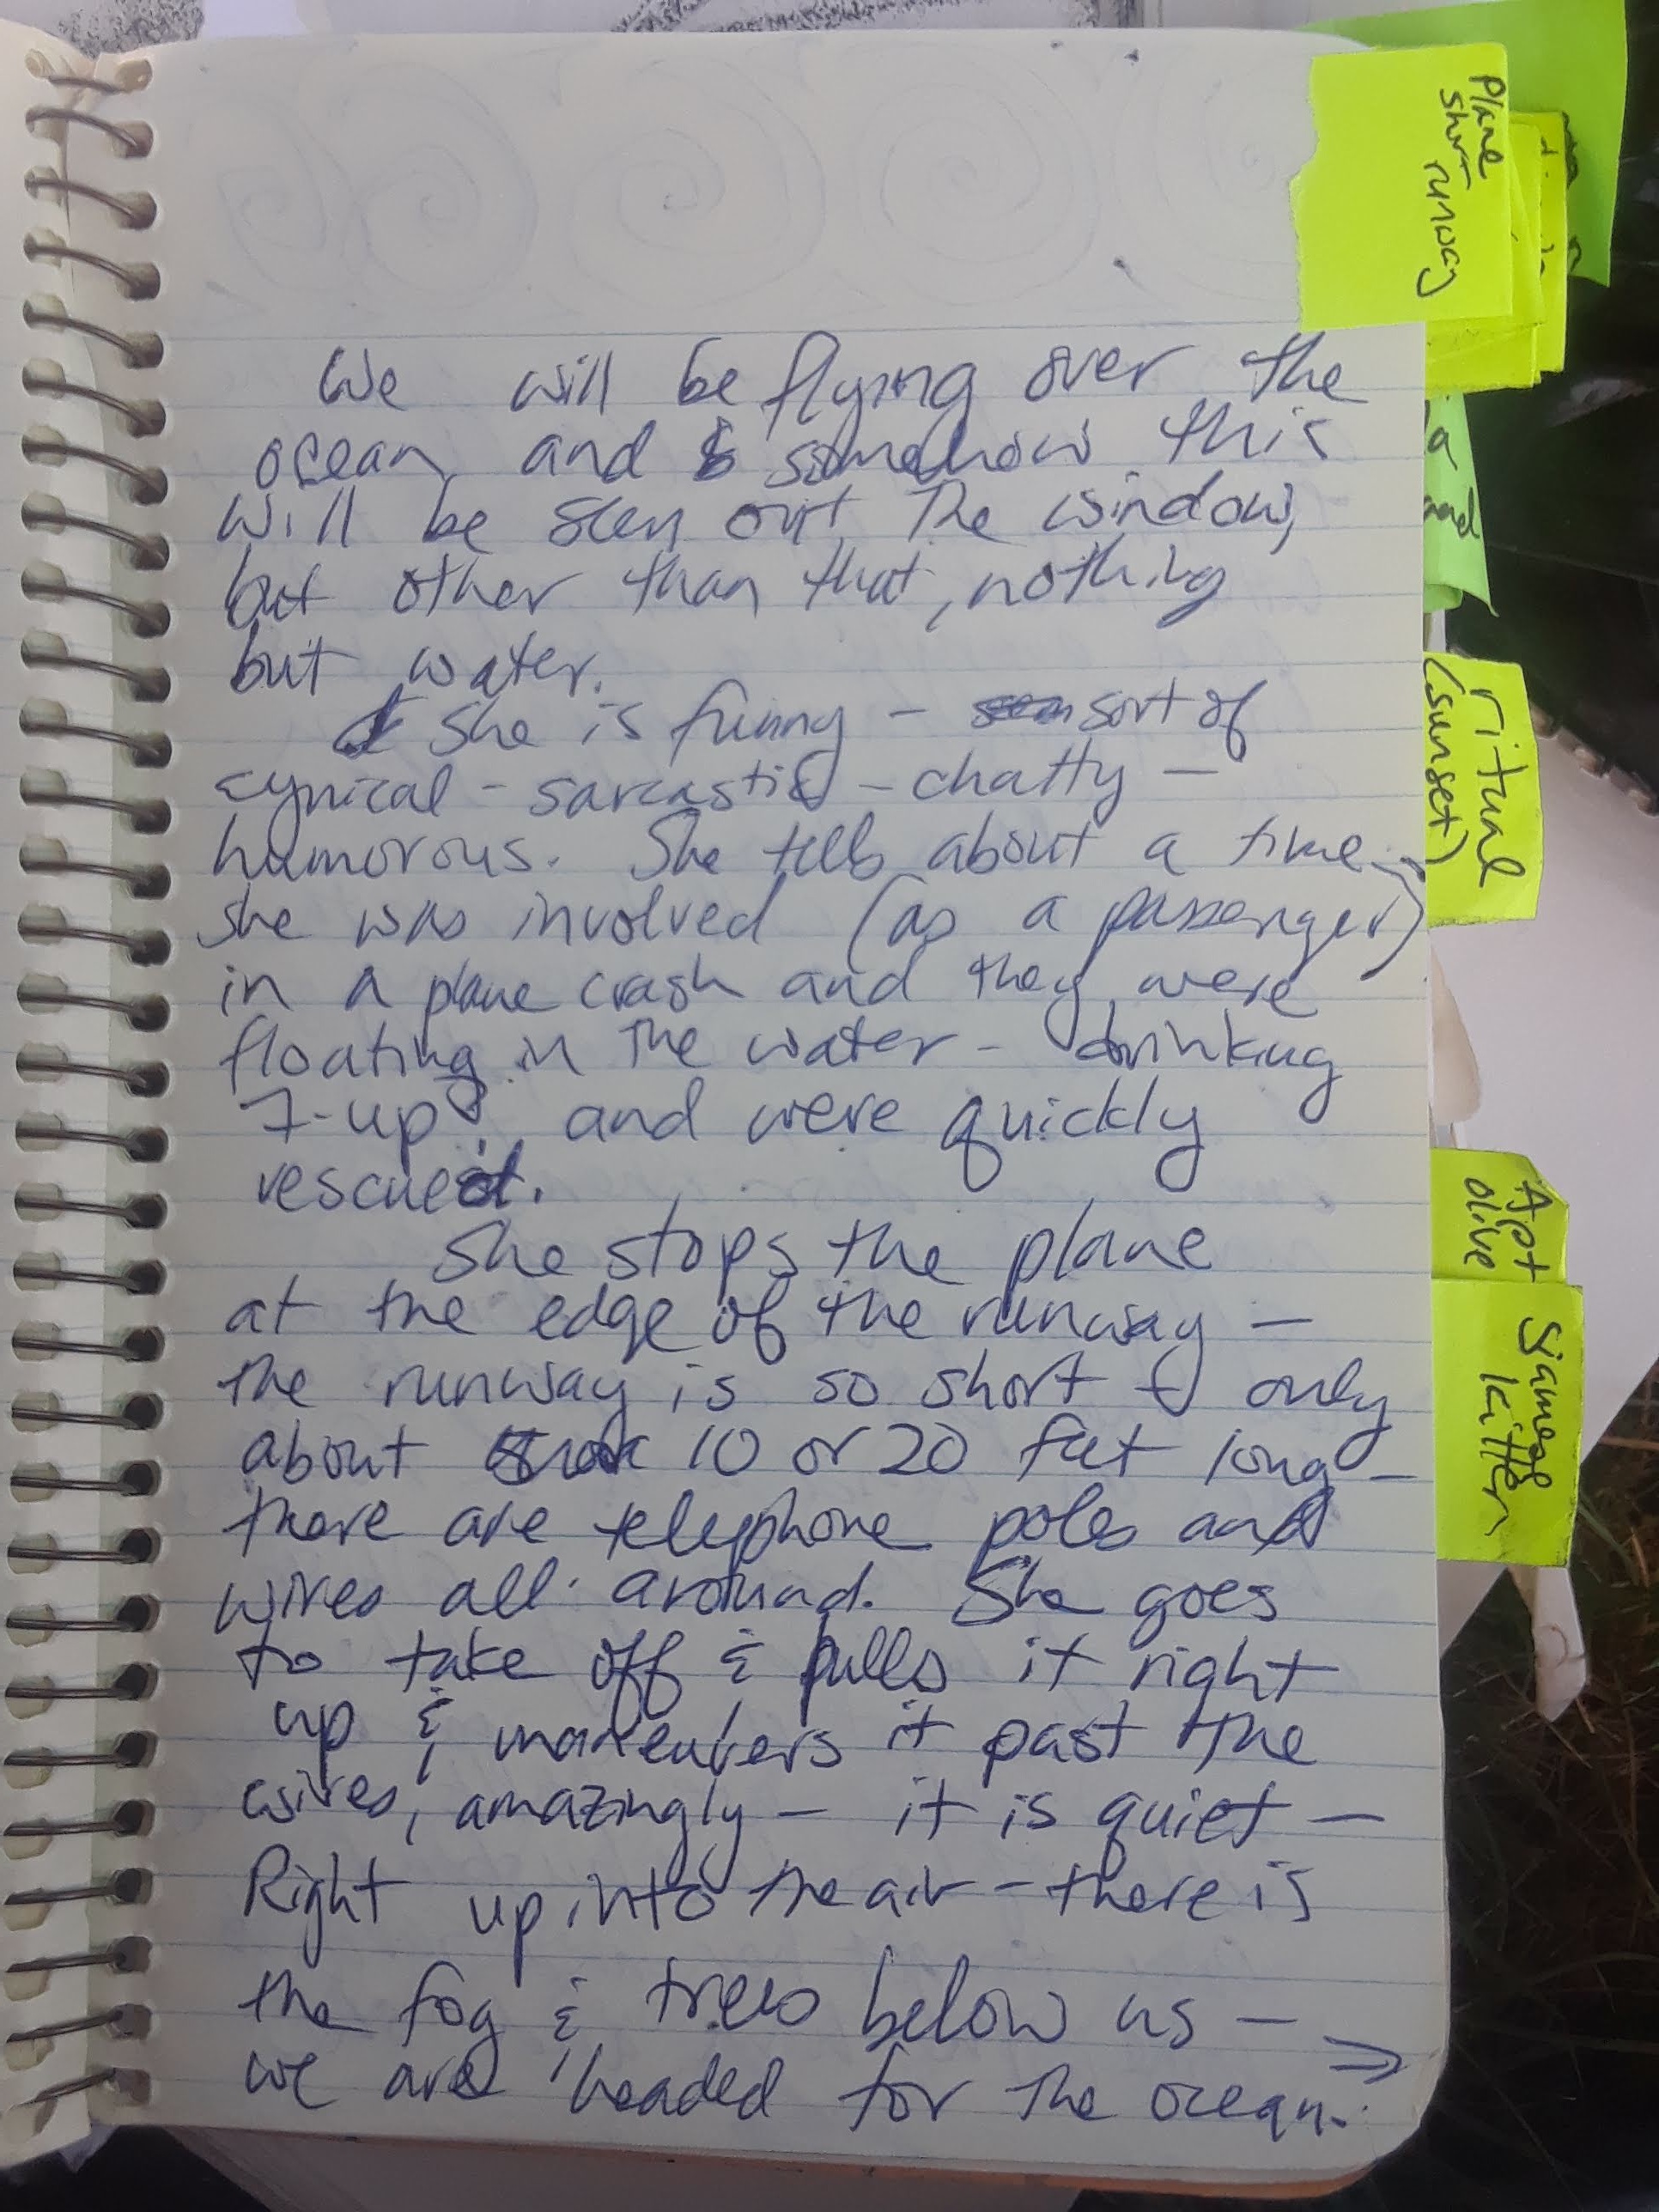 We will be flying over the
ocean and somehow this
will be seen out the window,
but other than that, nothing
but water.
She is funny - sort of
cynical - sarcastic - chatty -
humorous. She tells about a time
she was involved (as a passenger)
in a plane crash and they were
floating in the water - drinking
7-up and were quickly
rescued.
She stops the plane
at the edge of the runway -
the runway is so short & only
about 10 or 20 feet long -
there are telephone poles and
wires all around. She goes
to take off & pulls it right
up & maneuvers it past the
wires, amazingly - it is quiet -
Right up into the air - there is
the fog & trees below us -
we are headed for the ocean. ⇒
Plane
short
runway
ritual
(sunset)
Apt
olive
Siamese
kitten